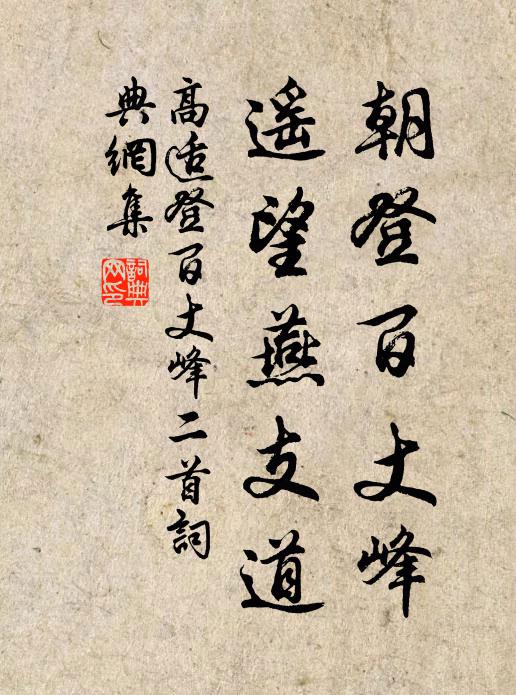 朝登百丈峰
遥望燕支道
高适登百丈峰二首詞
典網集
詞典网印